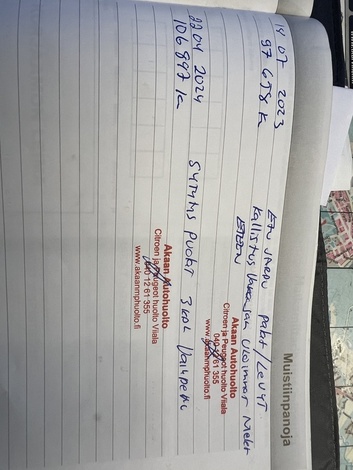 Muistiinpanoja
14 07 2023
97 658 k
ETU JARRU palat/LEVYT
Kallistuksen vakaajan uloimmat nivelet
ETEEN
Akaan Autohuolto
Citroen ja Peugeot huolto Viiala
040 12 61 355
www.akaanmphuolto.fi
22 04 2024
106 897 k
SYTYTYS PUOLAT 3 kpl
Akaan Autohuolto
Citroen ja Peugeot huolto Viiala
040 12 61 355
www.akaanmphuolto.fi